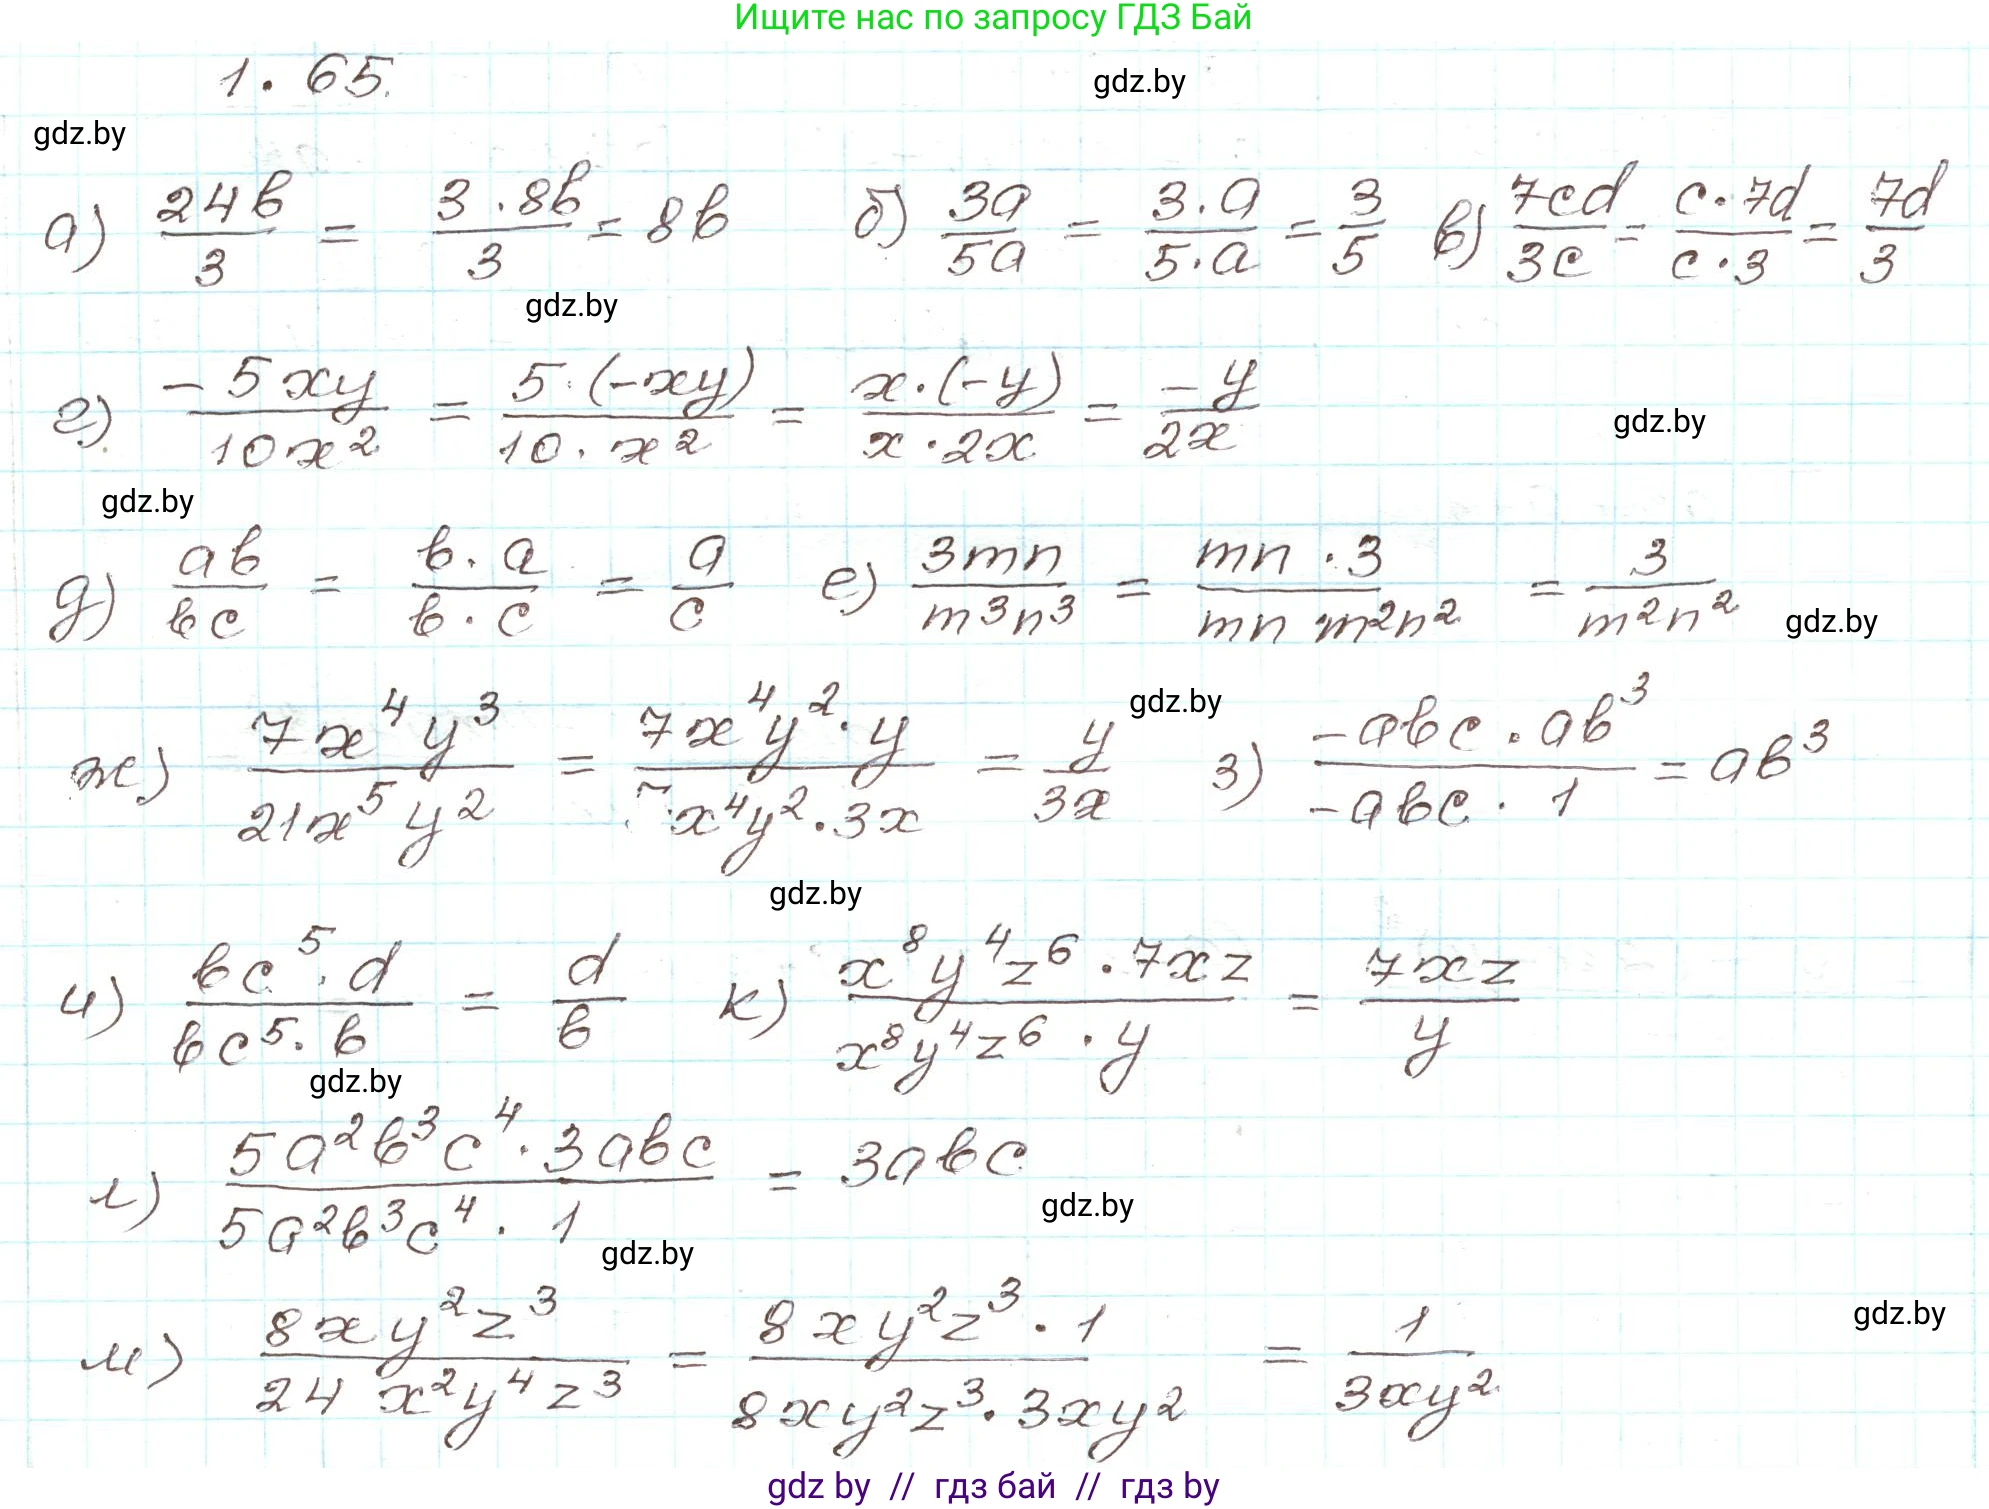 Ищите нас по запросу ГДЗ Бай
1.65.
gdz.by
gdz.by
а) 24b/3 = 3·8b/3 = 8b б) 3a/5a = 3·a/5·a = 3/5 в) 7cd/3c = c·7d/c·3 = 7d/3
gdz.by
г) -5xy/10x² = 5·(-xy)/10·x² = x·(-y)/x·2x = -y/2x
gdz.by
gdz.by
д) ab/bc = b·a/b·c = a/c е) 3mn/m³n³ = mn·3/mn·m²n² = 3/m²n²
gdz.by
gdz.by
ж) 7x⁴y³/21x⁵y² = 7x⁴y²·y/7x⁴y²·3x = y/3x з) -abc·ab³/-abc·1 = ab³
gdz.by
и) bc⁵·d/bc⁵·b = d/b к) x⁸y⁴z⁶·7xz/x⁸y⁴z⁶·y = 7xz/y
gdz.by
л) 5a²b³c⁴·3abc/5a²b³c⁴·1 = 3abc
gdz.by
gdz.by
м) 8xy²z³/24x²y⁴z³ = 8xy²z³·1/8xy²z³·3xy² = 1/3xy²
gdz.by
gdz by // гдз бай // гдз by